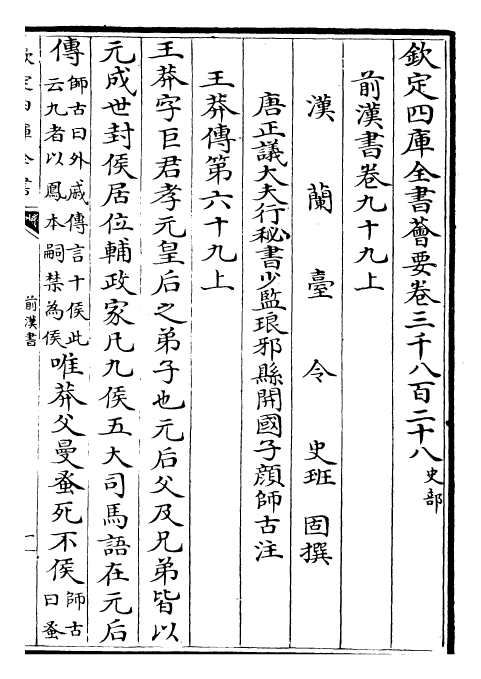 欽定四庫全書薈要卷三千八百二十八史部
前漢書卷九十九上
漢蘭臺令史班固撰
唐正議大夫行秘書少監琅邪縣開國子顔師古注
王莽傳第六十九上
王莽字巨君孝元皇后之弟子也元后父及兄弟皆以
元成世封侯居位輔政家凡九侯五大司馬語在元后
傳師古曰外戚傳言十侯此云九者以鳳本嗣禁為侯唯莽父曼蚤死不侯師古曰蚤
欽定四庫全書
前漢書
一